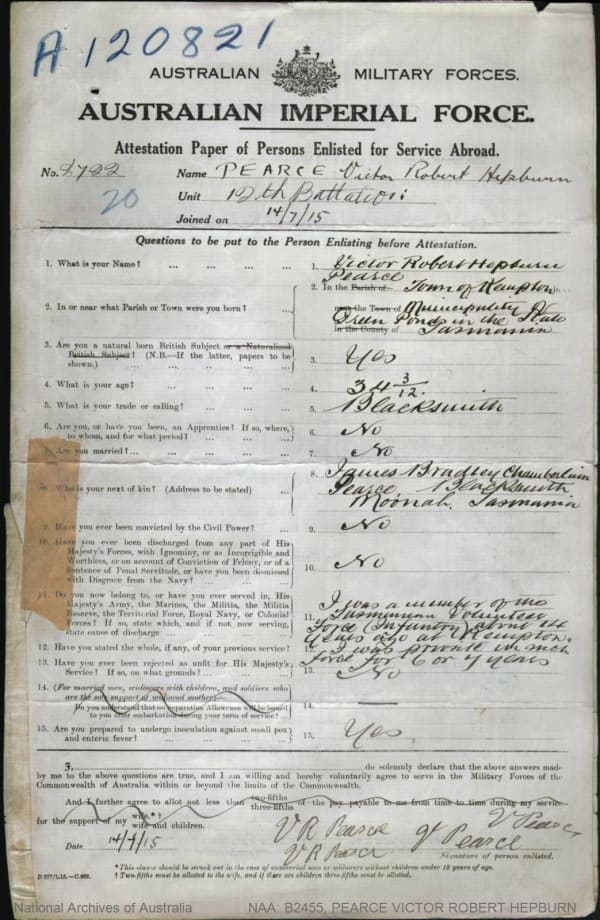 A 120821
AUSTRALIAN MILITARY FORCES.
AUSTRALIAN IMPERIAL FORCE.
Attestation Paper of Persons Enlisted for Service Abroad.
No. 2722 Name PEARCE Victor Robert Hepburn
20 Unit 12th Battalion
Joined on 14/7/15
Questions to be put to the Person Enlisting before Attestation.
1. What is your Name? ... ... ... ... 1. Victor Robert Hepburn
Pearce
2. In the Parish of Town of Kempton in
2. In or near what Parish or Town were you born? ... near the Town of Municipality of
Green Ponds in the State
in the County of Tasmania
3. Are you a natural born British Subject or a Naturalised
British Subject? (N.B.—If the latter, papers to be
shown.) ... ... ... ... 3. Yes
4. What is your age? ... ... ... ... 4. 34 3/12
5. What is your trade or calling? ... ... ... 5. Blacksmith
6. Are you, or have you been, an Apprentice? If so, where,
to whom, and for what period? ... ... ... 6. No
7. Are you married? ... ... ... ... 7. No
8. Who is your next of kin? (Address to be stated) ... 8. James Bradley Chamberlain
Pearce Blacksmith
Moonah, Tasmania
9. Have you ever been convicted by the Civil Power? ... 9. No
10. Have you ever been discharged from any part of His
Majesty's Forces, with Ignominy, or as Incorrigible and
Worthless, or on account of Conviction of Felony, or of a
Sentence of Penal Servitude, or have you been dismissed
with Disgrace from the Navy? ... ... ... 10. No
11. Do you now belong to, or have you ever served in, His
Majesty's Army, the Marines, the Militia, the Militia
Reserve, the Territorial Force, Royal Navy, or Colonial
Forces? If so, state which, and if not now serving,
state cause of discharge ... ... ... 11. I was a member of the
Tasmanian Volunteer
Force (Infantry) about 14
years ago at Kempton.
12. Have you stated the whole, if any, of your previous service? 12. I was private in such
Force for 6 or 7 years
13. Have you ever been rejected as unfit for His Majesty's
Service? If so, on what grounds? ... ... ... 13. No
14. (For married men, widowers with children, and soldiers who
are the sole support of widowed mother)—
Do you understand that no Separation Allowance will be issued
to you after embarkation during your term of service? 14. —
15. Are you prepared to undergo inoculation against small pox
and enteric fever? ... ... ... ... 15. Yes
I, do solemnly declare that the above answers made
by me to the above questions are true, and I am willing and hereby voluntarily agree to serve in the Military Forces of the
Commonwealth of Australia within or beyond the limits of the Commonwealth.
And I further agree to allot not less than two-fifths three-fifths of the pay payable to me from time to time during my service
for the support of my wife.*† wife and children.
V R Pearce V Pearce V Pearce
Date 14/7/15 V R Pearce
Signature of person enlisted.
* This clause should be struck out in the case of unmarried men or widowers without children under 18 years of age.
† Two-fifths must be allotted to the wife, and if there are children three-fifths must be allotted.
National Archives of Australia NAA: B2455, PEARCE VICTOR ROBERT HEPBURN